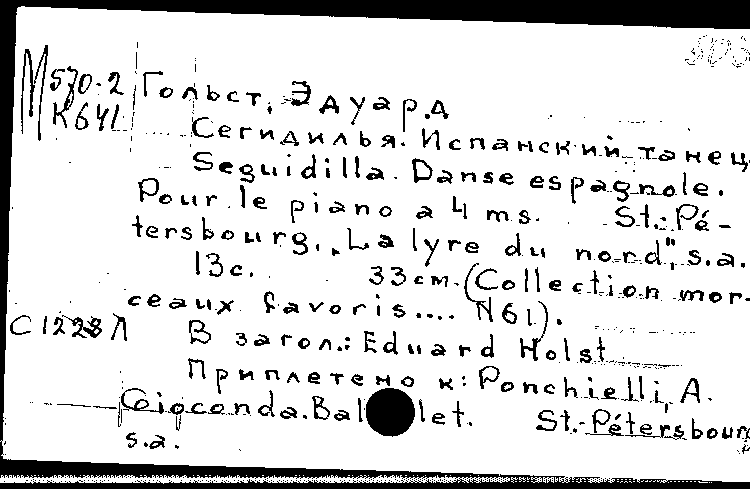 503
М570-2 Гольст, Эдуард
К641
Сегидилья. Испанский танец.
Seguidilla. Danse espagnole.
Pour le piano a 4 ms. St.-Pé-
tersbourg, „La lyre du nord", s.a.
13с. 33см. (Collection mor-
ceaux favoris.... N61).
С1228Л В загол.: Eduard Holst
Приплетено к: Ponchielli, A.
Gioconda. Ballet. St.-Pétersbourg
s.a.